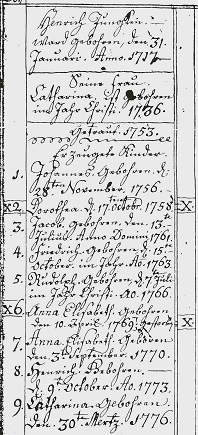 Henrich Jungkin
Ward Gebohren, den 31.
Januari. Anno. 1717
Seine frau.
Catharina, ist Gebohren
im Jahr Christi. 1736.
Getraut. 1753.
Erzeugete Kinder
1. Johannes. Gebohren. d.
28ten November. 1756.
X2. Dorothea. d. 17 October. 1758 X
3. Jacob. Gebohren. den. 13ten
Julius. Anno Domini 1761.
4. Friedrich Gebohren d. 15ten
October. im Jahr. Ao. 1763
5. Rudolph. Gebohren. d. 7ten Juli.
im Jahr Christi. Ao. 1766.
X6. Anna Elisabeth. Gebohren
den 10. April. 1769. Gestorben X
7. Anna. Elisabeth. Geboren
den. 3ten September. 1770.
8. Henrich Gebohren.
d. 9ten October. Ao. 1773.
9. Catharina. Gebohren.
den. 30ten Mertz. 1776.